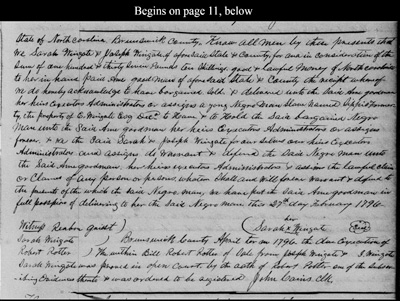 Begins on page 11, below
State of North Carolina Brunswick County. Know all men by these presents that
we Sarah Wingate & Joseph Wingate of aforesaid state & County, for and in consideration of the
sum of one hundred & thirty Seven Pounds ten shilling good & lawful money of North carolina
to her in hand paid Ann goodman of aforesaid State & County the receipt whereof
we do hereby acknowledge to have bargained sold & delivered unto the said Ann goodman
her heirs Executors Administrators or assigns a young Negro man Slave named
the property of E. Wingate Esq. to Have & to Hold the said bargained Negro
Man unto the Said Ann goodman her heirs Executors Administrators or assigns
forever. & we the Said Sarah & Joseph Wingate for our selves our heirs Executors
Administrators and assigns do Warrant & defend the Said Negro man unto
the Said Ann goodman her heirs executors Administrators & assigns the lawful claim
or Claims of any person or persons whatever Shall and Will forever warrant & defend
the of the which the Said Negro man, we have put the Said Ann goodman in
full possession of delivering to her the Said Negro man this 27th day February 1796
her
Witness Sarah X Wingate
Sarah Wingate Brunswick County April term 1796 the due Execution of
Robert Potter the within Bill Robert Potter of Sale from Joseph Wingate &
Sarah Wingate was proved in open Court by the oath of Robert Potter one of the Subscribing
Evidence thereto & was ordered to be registered John Cains Clk